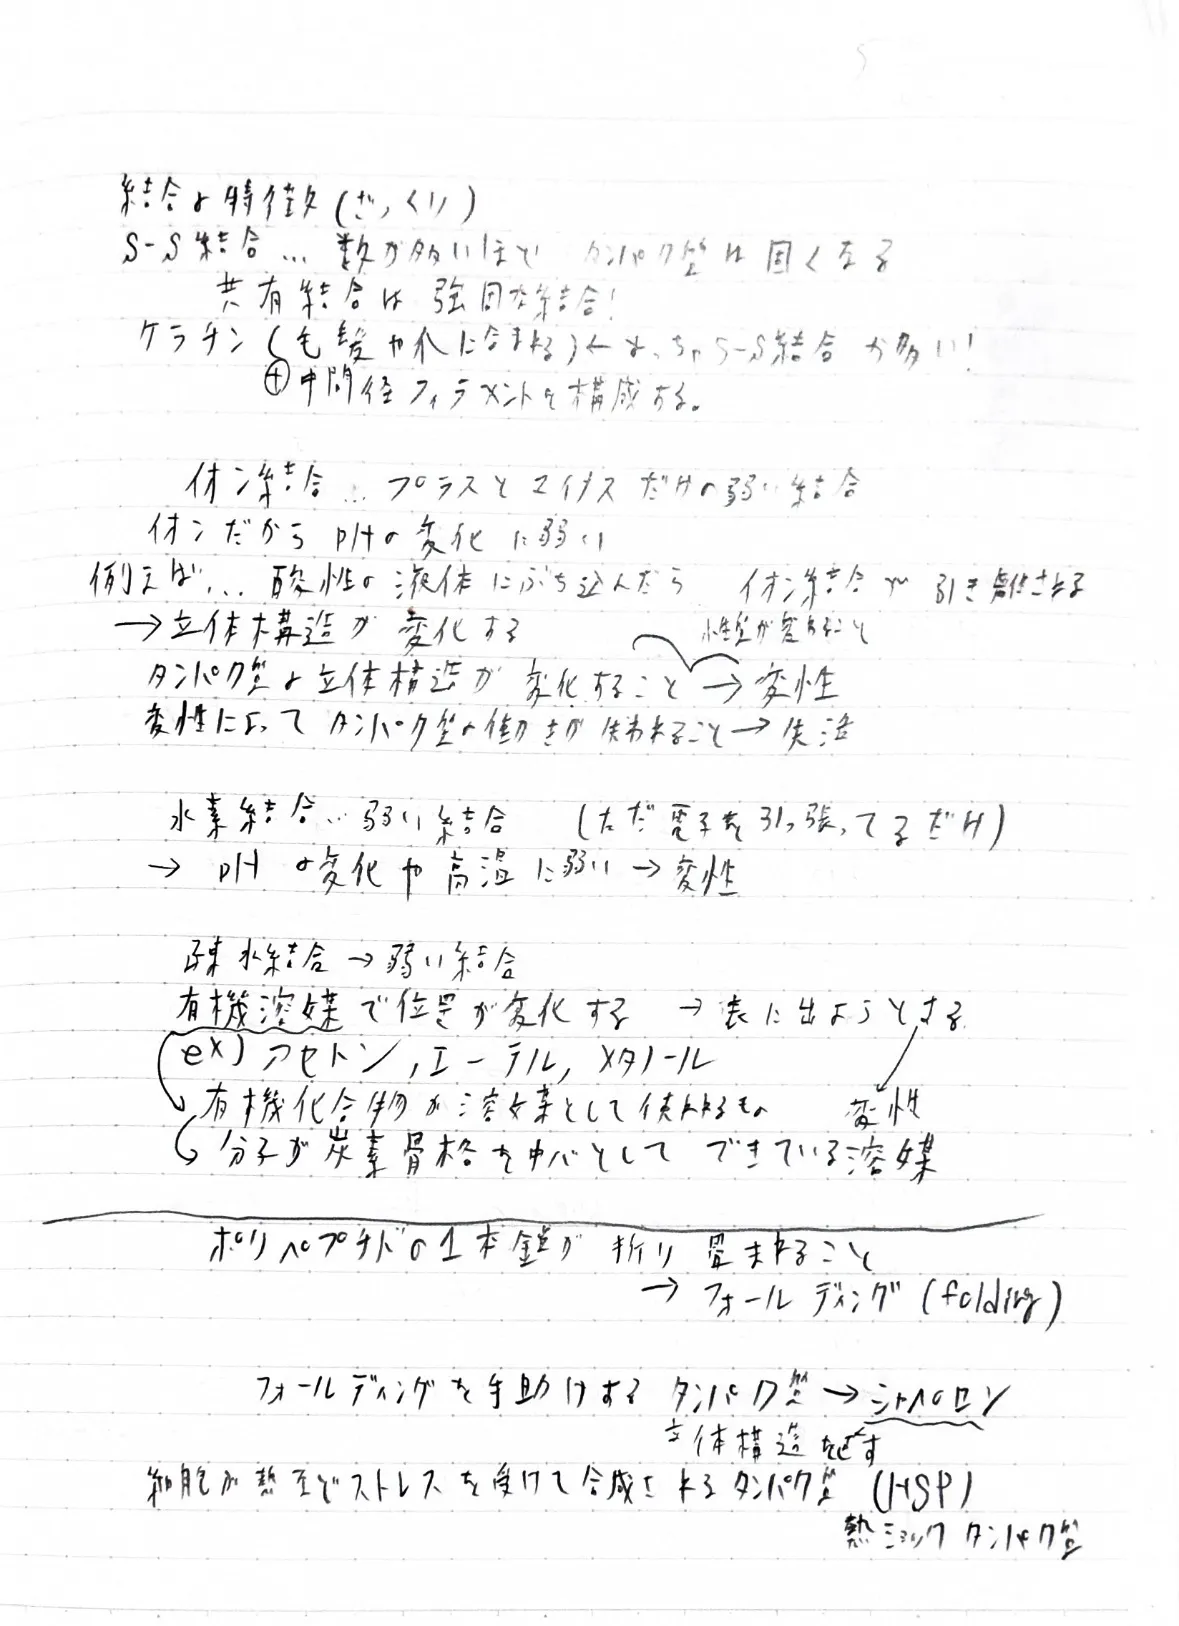 結合の特徴(ざっくり)
S-S結合… 数が多いほど タンパク質は固くなる
共有結合は強固な結合!
ケラチン(毛髪や爪に含まれる)←めっちゃS-S結合が多い!
⊕中間径フィラメントを構成する。
イオン結合… プラスとマイナスだけの弱い結合
イオンだから pHの変化に弱い
例えば… 酸性の液体にぶち込んだら イオン結合が引き離される
→立体構造が変化する
性質が変わること
タンパク質の立体構造が変化すること→変性
変性によってタンパク質の働きが失われること→失活
水素結合…弱い結合 (ただ電子を引っ張ってるだけ)
→ pHの変化や高温に弱い→変性
疎水結合→弱い結合
有機溶媒で位置が変化する →表に出ようとする
ex) アセトン,エーテル,メタノール
有機化合物が溶媒として使われるもの 変性
分子が炭素骨格を中心としてできている溶媒
ポリペプチドの1本鎖が折り畳まれること
→フォールディング(folding)
フォールディングを手助けするタンパク質→シャペロン
立体構造を
細胞が熱などストレスを受けて合成されるタンパク質(HSP)
熱ショックタンパク質